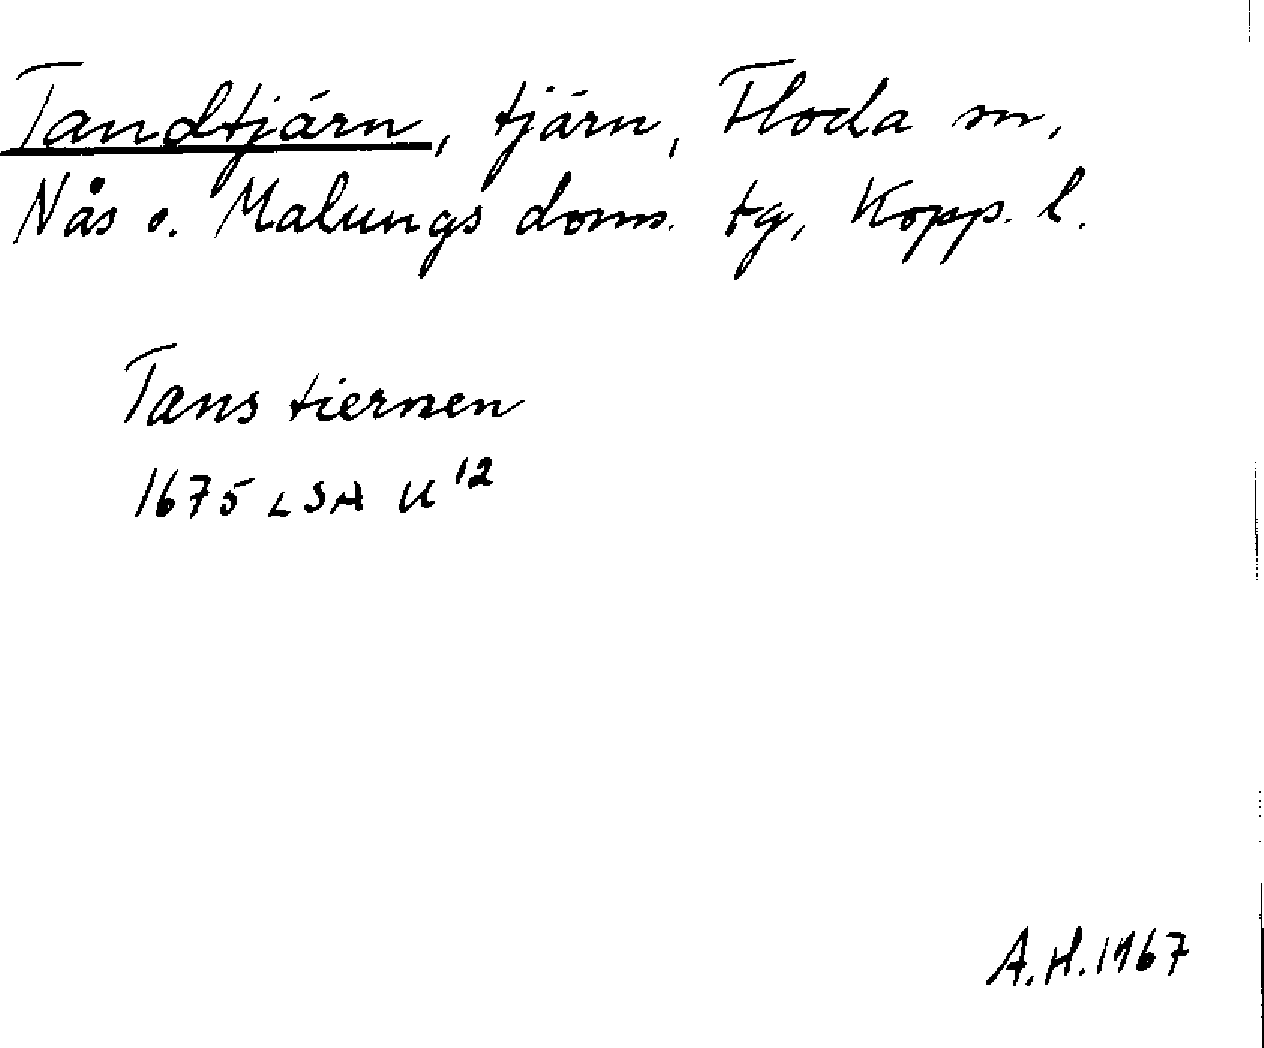 Tandtjärn, tjärn, Floda sn,
Nås o. Malungs doms. tg, Kopp. l.
Tans tiernen
1675 LSA U¹²
A.H. 1967